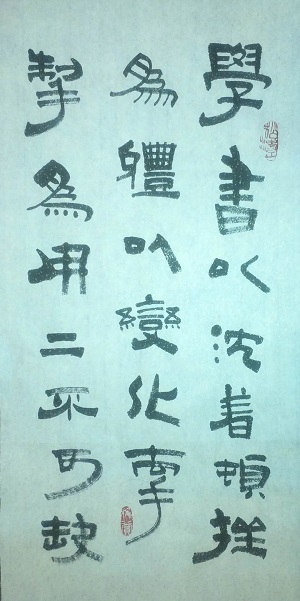 學書以沈着頓挫
為體以變化牽
掣為用二不可缺